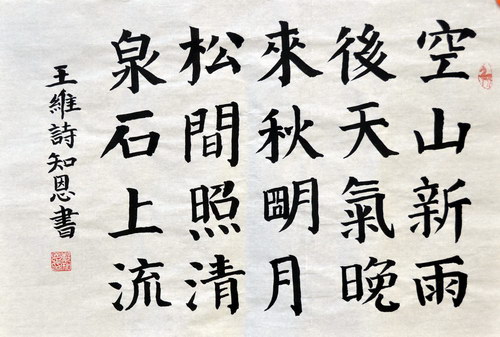 空山新雨
後天氣晚
來秋明月
松間照清
泉石上流
王維詩知恩書